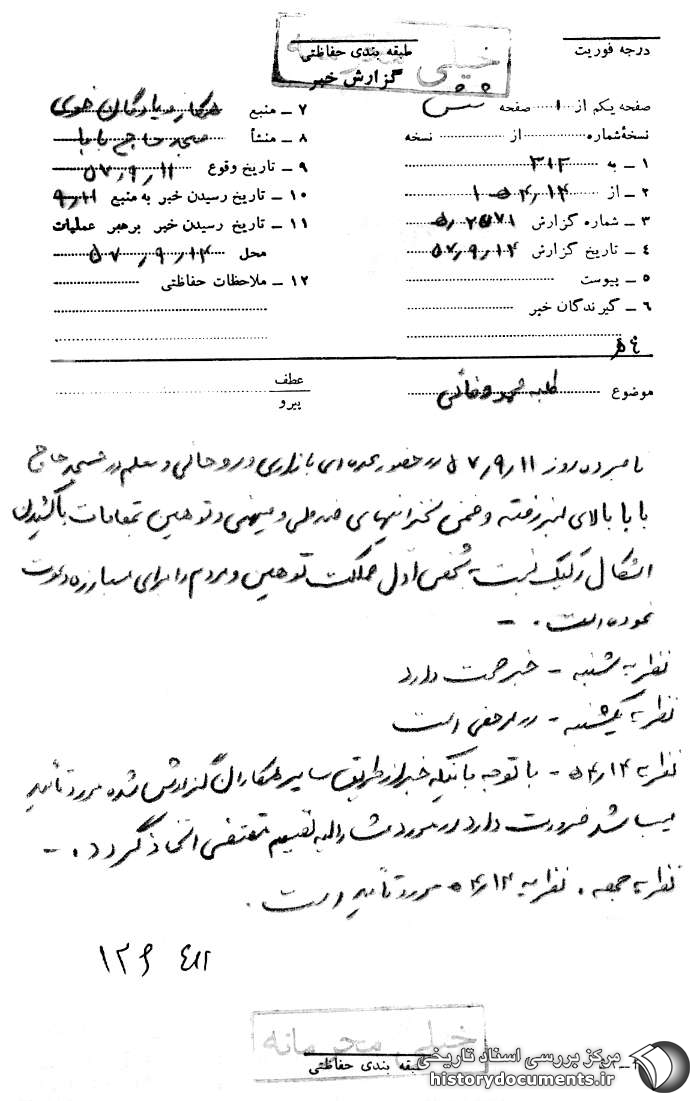 درجه فوریت
طبقه بندی حفاظتی
خیلی محرمانه
گزارش خبر
صفحه یکم از ۱ صفحه
نسخهٔ شماره از نسخه
۱ ــ به ۳۱۲
۲ ــ از ۱۴
۳ ــ شماره گزارش
۴ ــ تاریخ گزارش ۵۷٫۹٫۱۴
۵ ــ پیوست
۶ ــ گیرندگان خبر
۷ ــ منبع همکار پادگان خوی
۸ ــ منشأ مسجد حاج بابا
۹ ــ تاریخ وقوع ۵۷٫۹٫۱۱
۱۰ ــ تاریخ رسیدن خبر به منبع ۹٫۱۱
۱۱ ــ تاریخ رسیدن خبر برهبر عملیات
محل ۵۷٫۹٫۱۴
۱۲ ــ ملاحظات حفاظتی
موضوع طلبه محمد وفائی
عطف
پیرو
نامبرده روز ۵۷٫۹٫۱۱ در حضور عده‌ای بازاری و روحانی و معلم در مسجد حاج
بابا بالای منبر رفته و ضمن سخنرانیهای ضد ملی و میهنی و توهین بمقامات با کشیدن
اشکال رکیک نسبت به شخص اول مملکت توهین و مردم را برای مبارزه دعوت
نموده است . ــ
نظریه شنبه ــ خبر صحت دارد
نظریه یکشنبه ــ در مرخصی است
نظریه ۵۴٫۱۴ ــ با توجه باینکه خبر از طریق سایر همکاران گزارش شده مورد تأیید
میباشد ضرورت دارد در مورد مشارالیه تصمیم مقتضی اتخاذ گردد . ــ
نظریه جمعه . نظریه ۵۴٫۱۴ مورد تأیید است .
۱۲۶ ۴۸۲
خیلی محرمانه
طبقه بندی حفاظتی
مرکز بررسی اسناد تاریخی
historydocuments.ir